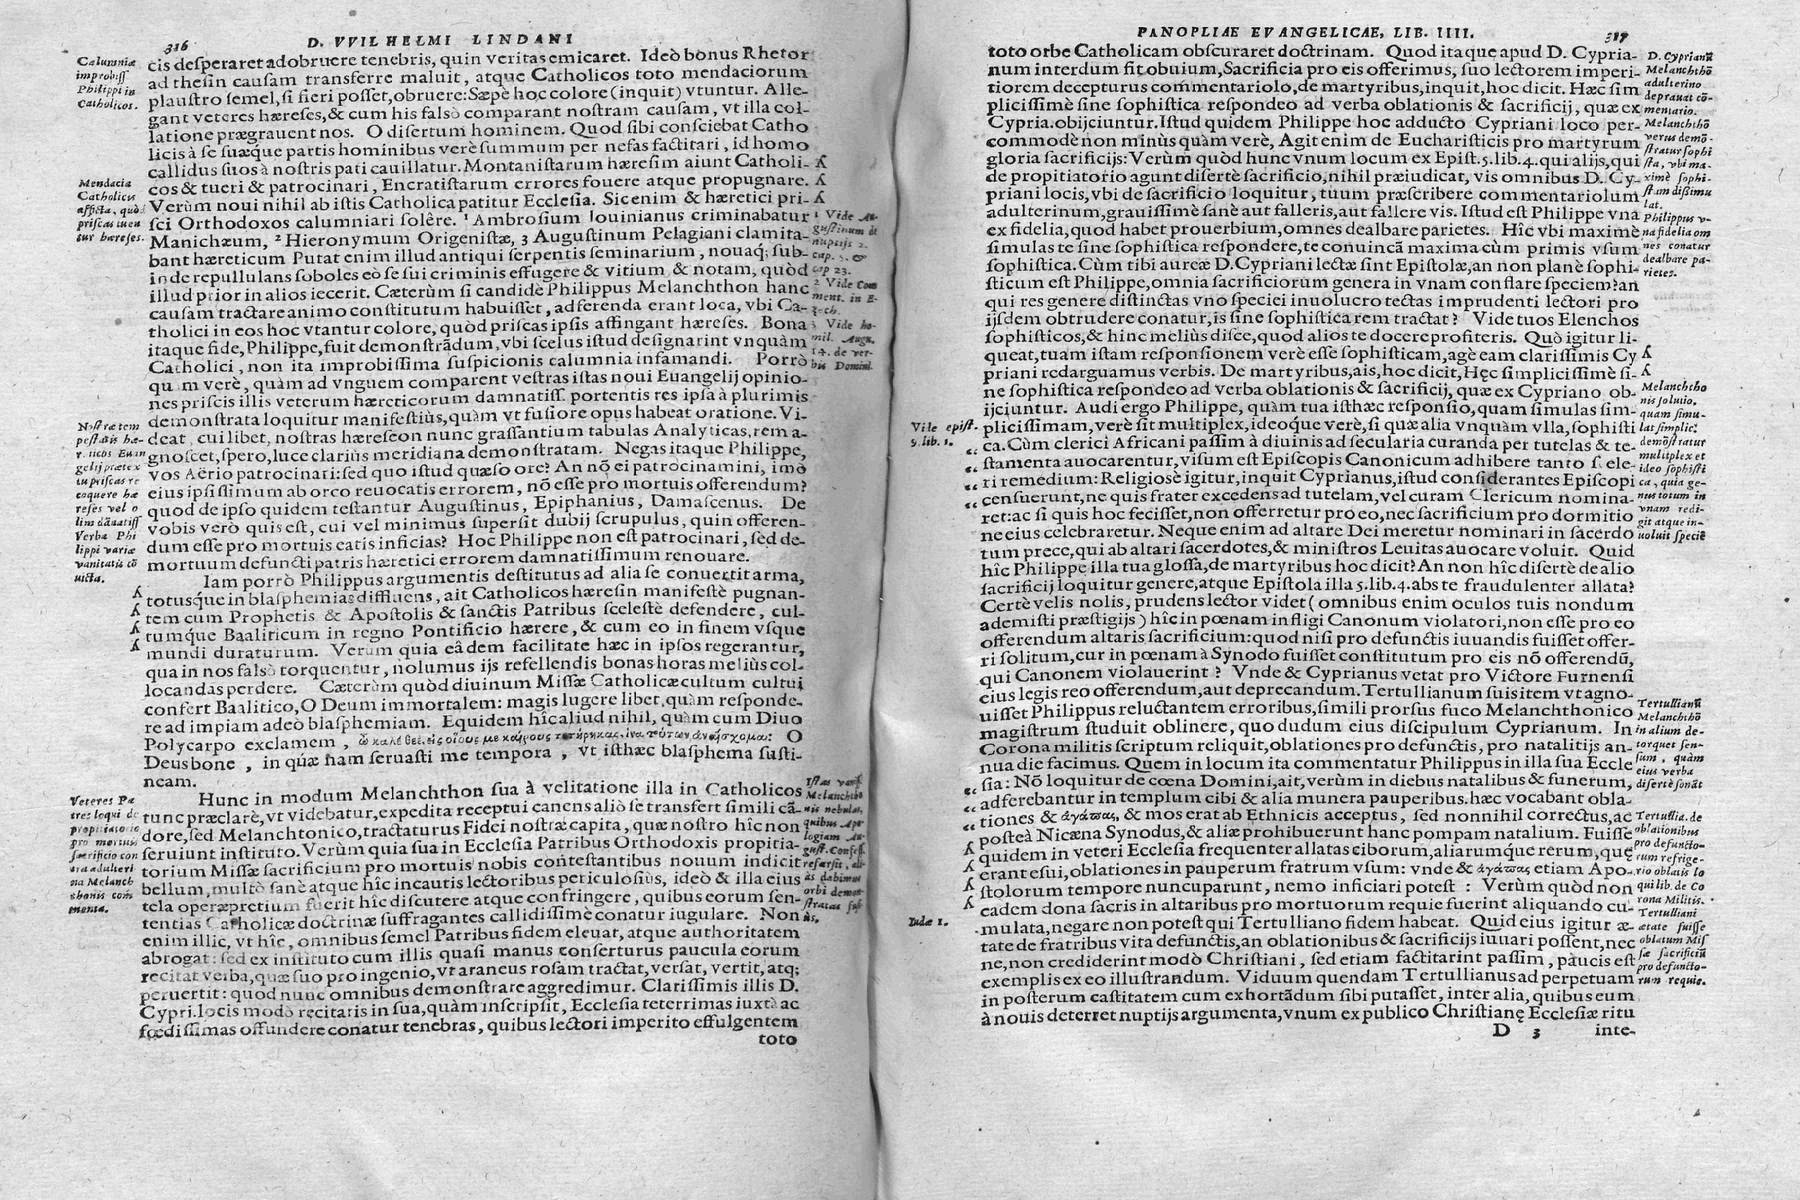 316
D. VVILHELMI LINDANI
cis desperaret adobruere tenebris, quin veritas emicaret. Ideò bonus Rhetor
ad thesin causam transferre maluit, atque Catholicos toto mendaciorum
plaustro semel, si fieri posset, obruere: Sæpè hoc colore (inquit) vtuntur. Alle-
gant veteres hæreses, & cum his falsò comparant nostram causam, vt illa col-
latione prægrauent nos. O disertum hominem. Quod sibi consciebat Catho
licis à se suæque partis hominibus verè summum per nefas factitari, id homo
callidus suos à nostris pati cauillatur. Montanistarum hæresim aiunt Catholi-
cos & tueri & patrocinari, Encratistarum errores fouere atque propugnare.
Verùm noui nihil ab istis Catholica patitur Ecclesia. Sic enim & hæretici pri-
sci Orthodoxos calumniari solêre. ¹ Ambrosium Iouinianus criminabatur
Manichæum, ² Hieronymum Origenistæ, 3 Augustinum Pelagiani clamita-
bant hæreticum Putat enim illud antiqui serpentis seminarium, nouaq; sub-
inde repullulans soboles eò se sui criminis effugere & vitium & notam, quòd
illud prior in alios iecerit. Cæterùm si candidè Philippus Melanchthon hanc
causam tractare animo constitutum habuisset, adferenda erant loca, vbi Ca-
tholici in eos hoc vtantur colore, quòd priscas ipsis affingant hæreses. Bona
itaque fide, Philippe, fuit demonstrãdum, vbi scelus istud designarint vnquàm
Catholici, non ita improbissima suspicionis calumnia infamandi. Porrò
quàm verè, quàm ad vnguem comparent vestras istas noui Euangelij opinio-
nes priscis illis veterum hæreticorum damnatiss. portentis res ipsa à plurimis
demonstrata loquitur manifestiùs, quàm vt fusiore opus habeat oratione. Vi-
deat, cui libet, nostras hæreseon nunc grassantium tabulas Analyticas, rem a-
gnoscet, spero, luce clariùs meridiana demonstratam. Negas itaque Philippe,
vos Aërio patrocinari: sed quo istud quæso ore? An nõ ei patrocinamini, imò
eius ipsissimum ab orco reuocatis errorem, nõ esse pro mortuis offerendum?
quod de ipso quidem testantur Augustinus, Epiphanius, Damascenus. De
vobis verò quis est, cui vel minimus supersit dubij scrupulus, quin offeren-
dum esse pro mortuis eatis inficias? Hoc Philippe non est patrocinari, sed de-
mortuum defuncti patris hæretici errorem damnatissimum renouare.
Iam porrò Philippus argumentis destitutus ad alia se conuertit arma,
totusque in blasphemias diffluens, ait Catholicos hæresin manifestè pugnan-
tem cum Prophetis & Apostolis & sanctis Patribus scelestè defendere, cul-
tumque Baaliticum in regno Pontificio hærere, & cum eo in finem vsque
mundi duraturum. Verum quia eâdem facilitate hæc in ipsos regerantur,
qua in nos falsò torquentur, nolumus ijs refellendis bonas horas meliùs col-
locandas perdere. Cæterùm quòd diuinum Missæ Catholicæ cultum cultui
confert Baalitico, O Deum immortalem: magis lugere libet, quàm responde-
re ad impiam adeò blasphemiam. Equidem hîc aliud nihil, quàm cum Diuo
Polycarpo exclamem, O
Deus bone, in quæ nam seruasti me tempora, vt isthæc blasphema susti-
neam.
Hunc in modum Melanchthon sua à velitatione illa in Catholicos
tunc præclarè, vt videbatur, expedita receptui canens aliò se transfert simili cã-
dore, sed Melanchtonico, tractaturus Fidei nostræ capita, quæ nostro hîc non
seruiunt instituto. Verùm quia sua in Ecclesia Patribus Orthodoxis propitia-
torium Missæ sacrificium pro mortuis nobis contestantibus nouum indicit
bellum, multò sanè atque hîc incautis lectoribus periculosiùs, ideò & illa eius
tela operæpretium fuerit hîc discutere atque confringere, quibus eorum sen-
tentias Catholicæ doctrinæ suffragantes callidissimè conatur iugulare. Non
enim illic, vt hîc, omnibus semel Patribus fidem eleuat, atque authoritatem
abrogat: sed ex instituto cum illis quasi manus conserturus paucula eorum
recitat verba, quæ suo pro ingenio, vt araneus rosam tractat, versat, vertit, atq;
peruertit: quod nunc omnibus demonstrare aggredimur. Clarissimis illis D.
Cypri. locis modò recitaris in sua, quàm inscripsit, Ecclesia teterrimas iuxtà ac
fœdissimas offundere conatur tenebras, quibus lectori imperito effulgentem
toto
Calumniæ
improbiss
Philippi in
Catholicos.
Mendacia
Catholicis
afficta, quòd
priscas tuen
tur hæreses.
¹ Vide Au-
gustinum de
nuptijs 2.
cap. 5. &
cap 23.
² Vide Com
ment. in E-
zech.
3 Vide ho-
mil. Augu.
14. de ver-
bis Domini.
Verba Phi
lippi variæ
vanitatis cõ
uicta.
Veteres Pa
tres loqui de
propitiatorio
pro mortuis
sacrificio con
tra adulteri
na Melanch
thonis com
menta.
PANOPLIAE EVANGELICAE, LIB. IIII.
317
toto orbe Catholicam obscuraret doctrinam. Quod itaque apud D. Cypria-
num interdum fit obuium, Sacrificia pro eis offerimus, suo lectorem imperi-
tiorem decepturus commentariolo, de martyribus, inquit, hoc dicit. Hæc sim
plicissimè sine sophistica respondeo ad verba oblationis & sacrificij, quæ ex
Cypria. obijciuntur. Istud quidem Philippe hoc adducto Cypriani loco per-
commodè non minùs quàm verè, Agit enim de Eucharisticis pro martyrum
gloria sacrificijs: Verùm quòd hunc vnum locum ex Epist. 5. lib. 4. qui alijs, qui
de propitiatorio agunt disertè sacrificio, nihil præiudicat, vis omnibus D. Cy-
priani locis, vbi de sacrificio loquitur, tuum præscribere commentariolum
adulterinum, grauissimè sanè aut falleris, aut fallere vis. Istud est Philippe vna
ex fidelia, quod habet prouerbium, omnes dealbare parietes. Hîc vbi maximè
simulas te sine sophistica respondere, te conuincã maxima cùm primis vsum
sophistica. Cùm tibi aureæ D. Cypriani lectæ sint Epistolæ, an non planè sophi-
sticum est Philippe, omnia sacrificiorum genera in vnam conflare speciem? an
qui res genere distinctas vno speciei inuolucro tectas imprudenti lectori pro
ijsdem obtrudere conatur, is sine sophistica rem tractat? Vide tuos Elenchos
sophisticos, & hinc meliùs disce, quod alios te docere profiteris. Quò igitur li-
queat, tuam istam responsionem verè esse sophisticam, agè eam clarissimis Cy
priani redarguamus verbis. De martyribus, ais, hoc dicit, Hęc simplicissimè si-
ne sophistica respondeo ad verba oblationis & sacrificij, quæ ex Cypriano ob-
ijciuntur. Audi ergo Philippe, quàm tua isthæc responsio, quam simulas sim-
plicissimam, verè sit multiplex, ideoque verè, si quæ alia vnquàm vlla, sophisti
ca. Cùm clerici Africani passim à diuinis ad secularia curanda per tutelas & te-
stamenta auocarentur, visum est Episcopis Canonicum adhibere tanto sceле-
ri remedium: Religiosè igitur, inquit Cyprianus, istud considerantes Episcopi
censuerunt, ne quis frater excedens ad tutelam, vel curam Clericum nomina-
ret: ac si quis hoc fecisset, non offerretur pro eo, nec sacrificium pro dormitio
ne eius celebraretur. Neque enim ad altare Dei meretur nominari in sacerdo
tum prece, qui ab altari sacerdotes, & ministros Leuitas auocare voluit. Quid
hîc Philippe illa tua glossa, de martyribus hoc dicit? An non hîc disertè de alio
sacrificij loquitur genere, atque Epistola illa 5. lib. 4. abs te fraudulenter allata?
Certè velis nolis, prudens lector videt (omnibus enim oculos tuis nondum
ademisti præstigijs) hîc in pœnam infligi Canonum violatori, non esse pro eo
offerendum altaris sacrificium: quod nisi pro defunctis iuuandis fuisset offer-
ri solitum, cur in pœnam à Synodo fuisset constitutum pro eis nõ offerendũ,
qui Canonem violauerint? Vnde & Cyprianus vetat pro Victore Furnensi
eius legis reo offerendum, aut deprecandum. Tertullianum suis item vt agno-
uisset Philippus reluctantem erroribus, simili prorsus fuco Melanchthonico
magistrum studuit oblinere, quo dudum eius discipulum Cyprianum. In
Corona militis scriptum reliquit, oblationes pro defunctis, pro natalitijs an-
nua die facimus. Quem in locum ita commentatur Philippus in illa sua Eccle
sia: Nõ loquitur de cœna Domini, ait, verùm in diebus natalibus & funerum,
adferebantur in templum cibi & alia munera pauperibus. hæc vocabant obla-
tiones & ἀγάπας, & mos erat ab Ethnicis acceptus, sed nonnihil correctus, ac
posteà Nicæna Synodus, & aliæ prohibuerunt hanc pompam natalium. Fuisse
quidem in veteri Ecclesia frequenter allatas ciborum, aliarumque rerum, quę
erant esui, oblationes in pauperum fratrum vsum: vnde & ἀγάπας etiam Apo-
stolorum tempore nuncuparunt, nemo inficiari potest: Verùm quòd non
eadem dona sacris in altaribus pro mortuorum requie fuerint aliquando cu-
mulata, negare non potest qui Tertulliano fidem habeat. Quid eius igitur æ-
tate de fratribus vita defunctis, an oblationibus & sacrificijs iuuari possent, nec
ne, non crediderint modò Christiani, sed etiam factitarint passim, paucis est
exemplis ex eo illustrandum. Viduum quendam Tertullianus ad perpetuam
in posterum castitatem cum exhortãdum sibi putasset, inter alia, quibus eum
à nouis deterret nuptijs argumenta, vnum ex publico Christianę Ecclesiæ ritu
D 3
inte-
D. Cypriani
Melanchthõ
adulterino
deprauat cõ-
mentario.
Melanchthõ
verus demõ-
stratur sophi
sta, vbi ma-
ximè sophi-
stam dissimu
lat.
Philippus v-
na fidelia om
nes conatur
dealbare pa-
rietes.
Vide epist.
9. lib. 1.
Melanchtho
nis solutio,
quam simu-
lat simplicẽ
demõstratur
multiplex et
ideo sophisti
ca, quia ge-
nus totum in
vnam redi-
git atque in-
uoluit speciẽ
Tertullianũ
Melanchthõ
in alium de-
torquet sen-
sum, quàm
eius verba
disertè sonãt
Tertullia. de
oblationibus
pro defuncto-
rum refrige-
rio oblatis lo
quit lib. de Co
rona Militis.
Iudæ 1.
Tertulliani
ætate fuisse
oblatum Mis
sæ sacrificiũ
pro defuncto-
rum requie.